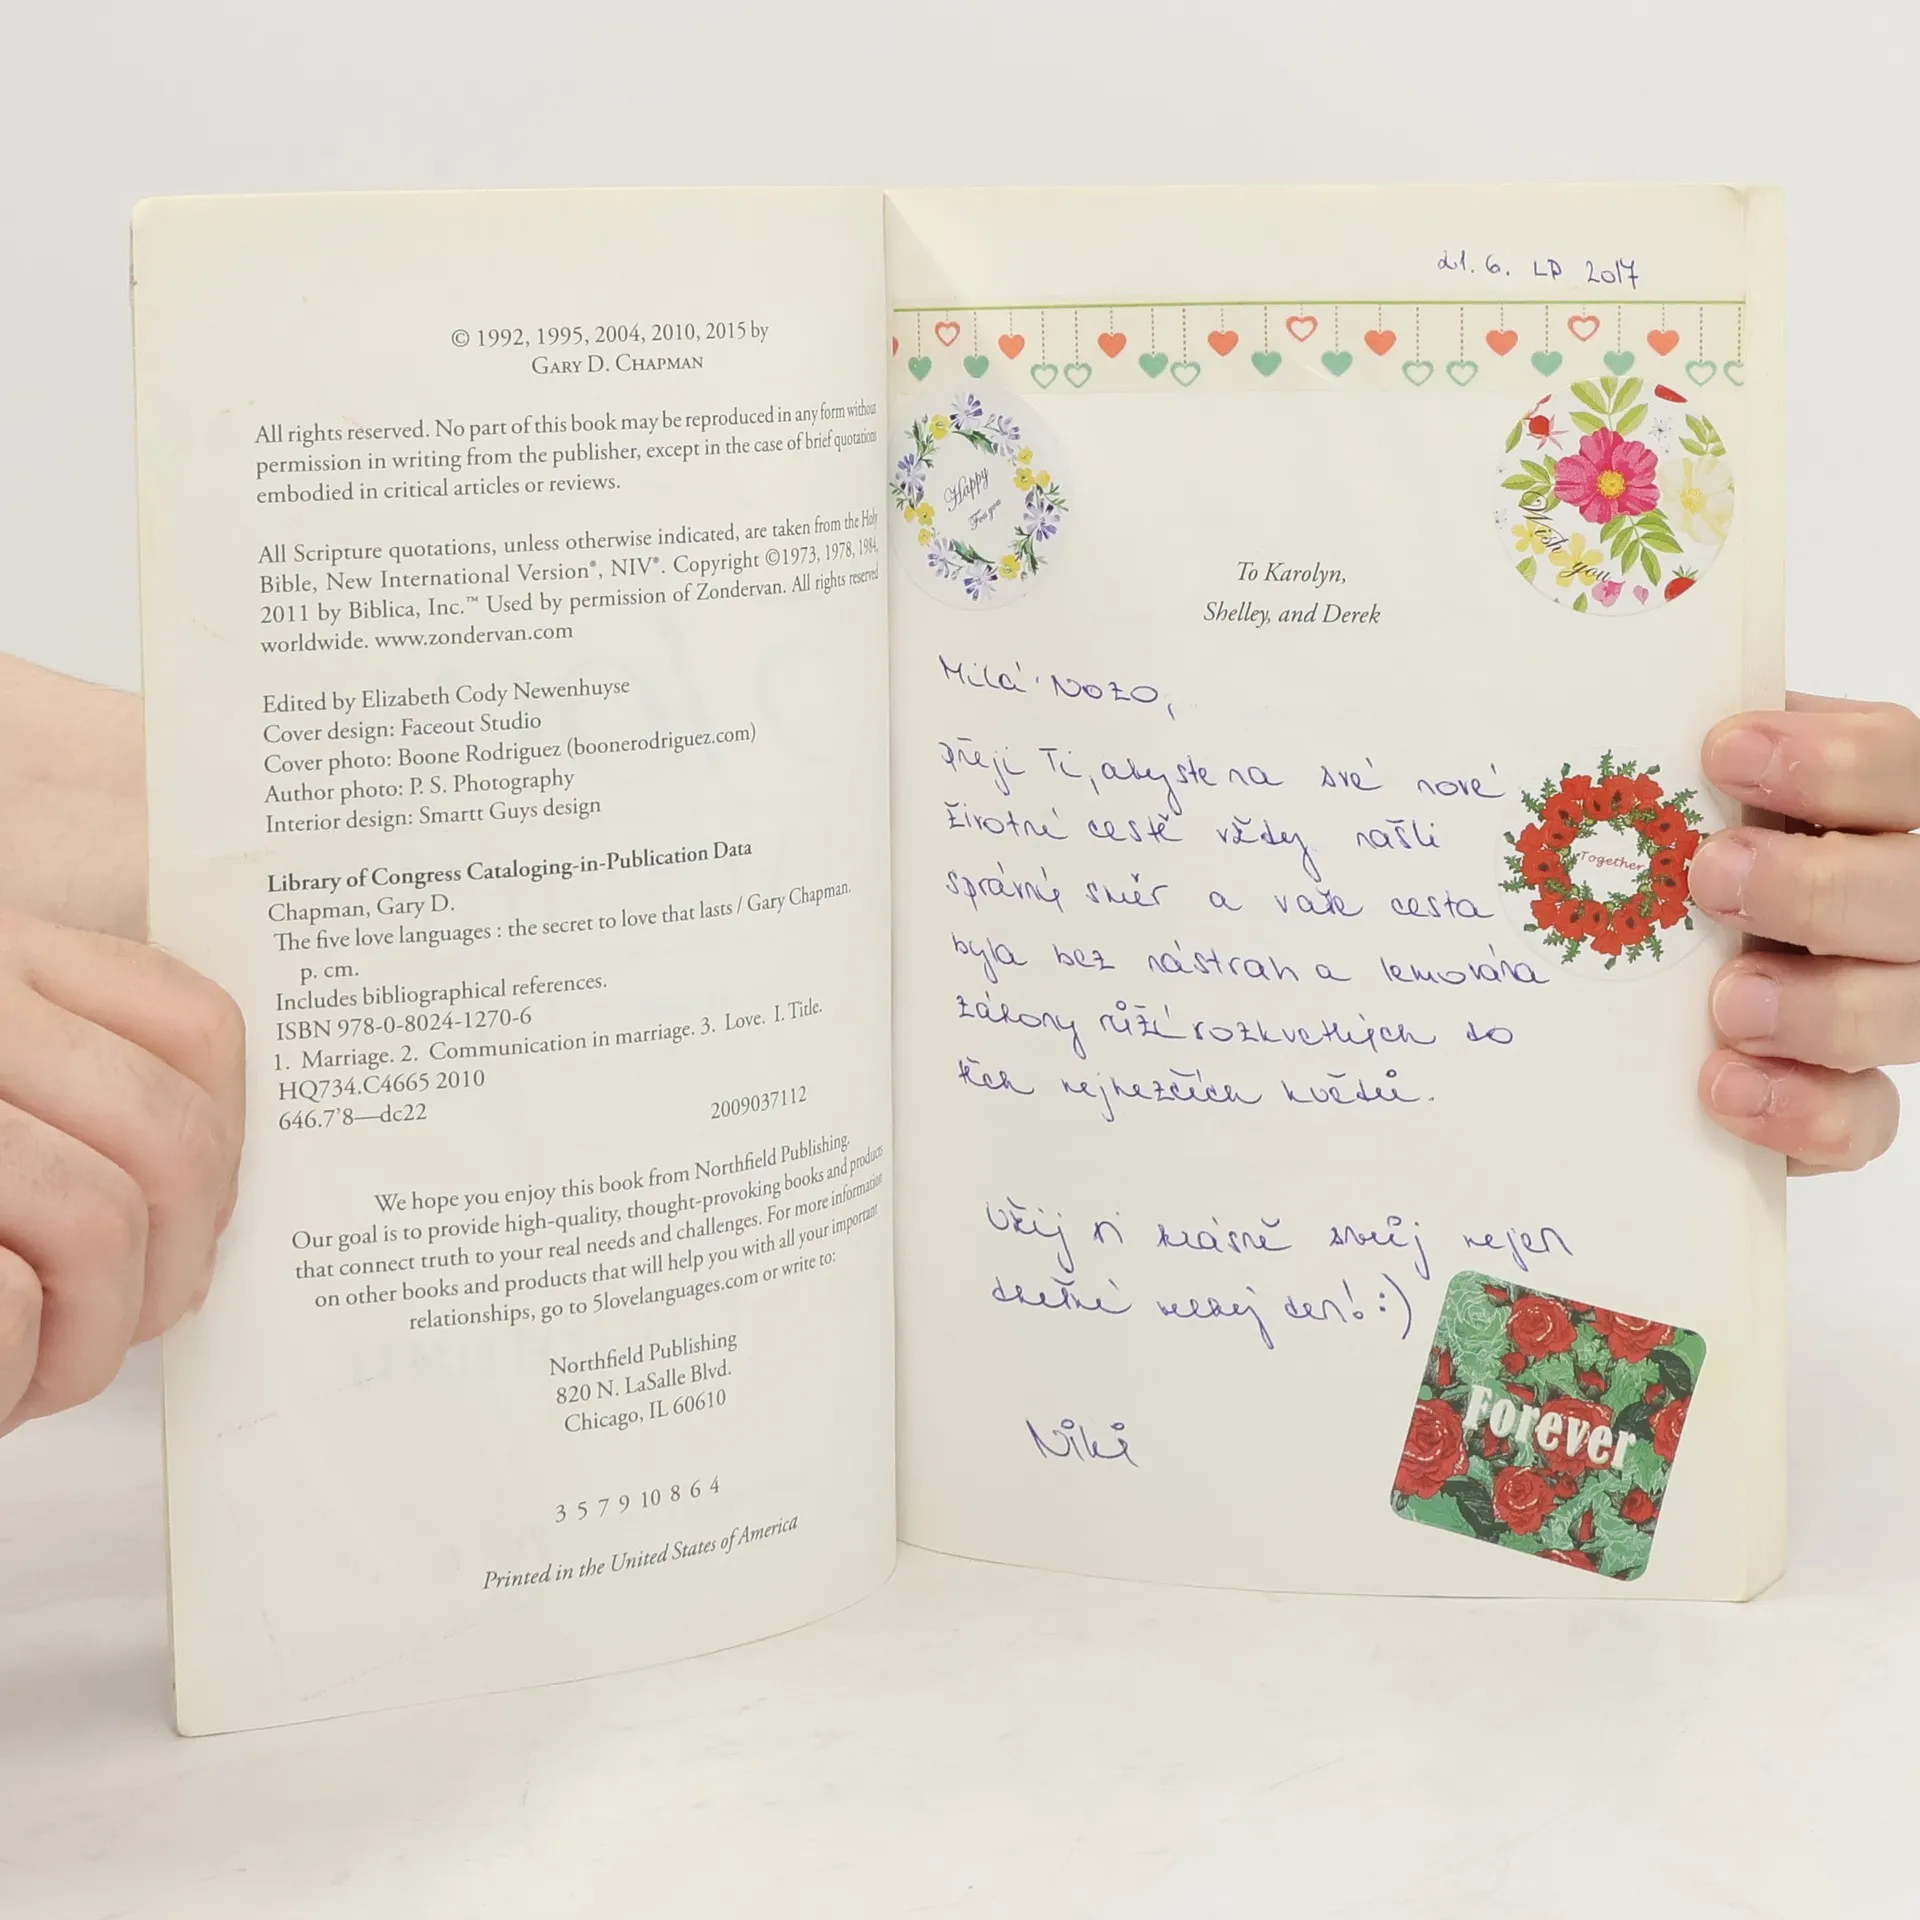 © 1992, 1995, 2004, 2010, 2015 by
GARY D. CHAPMAN
All rights reserved. No part of this book may be reproduced in any form without
permission in writing from the publisher, except in the case of brief quotations
embodied in critical articles or reviews.
All Scripture quotations, unless otherwise indicated, are taken from the Holy
Bible, New International Version®, NIV®. Copyright ©1973, 1978, 1984,
2011 by Biblica, Inc.™ Used by permission of Zondervan. All rights reserved
worldwide. www.zondervan.com
Edited by Elizabeth Cody Newenhuyse
Cover design: Faceout Studio
Cover photo: Boone Rodriguez (boonerodriguez.com)
Author photo: P. S. Photography
Interior design: Smartt Guys design
Library of Congress Cataloging-in-Publication Data
Chapman, Gary D.
The five love languages : the secret to love that lasts / Gary Chapman.
p. cm.
Includes bibliographical references.
ISBN 978-0-8024-1270-6
1. Marriage. 2. Communication in marriage. 3. Love. I. Title.
HQ734.C4665 2010
646.7'8—dc22
2009037112
We hope you enjoy this book from Northfield Publishing.
Our goal is to provide high-quality, thought-provoking books and products
that connect truth to your real needs and challenges. For more information
on other books and products that will help you with all your important
relationships, go to 5lovelanguages.com or write to:
Northfield Publishing
820 N. LaSalle Blvd.
Chicago, IL 60610
3 5 7 9 10 8 6 4
Printed in the United States of America
21. 6. LP 2017
Happy
For you
Wish
you
To Karolyn,
Shelley, and Derek
Milá Nozo,
přeji Ti, abyste na své nové
životní cestě vždy našli
správný směr a vaše cesta
byla bez nástrah a lemována
zákony růží rozkvetlých do
těch nejhezčích květů.
Together
Užij si krásně svůj nejen
dnešní velký den! :)
Niki
Forever